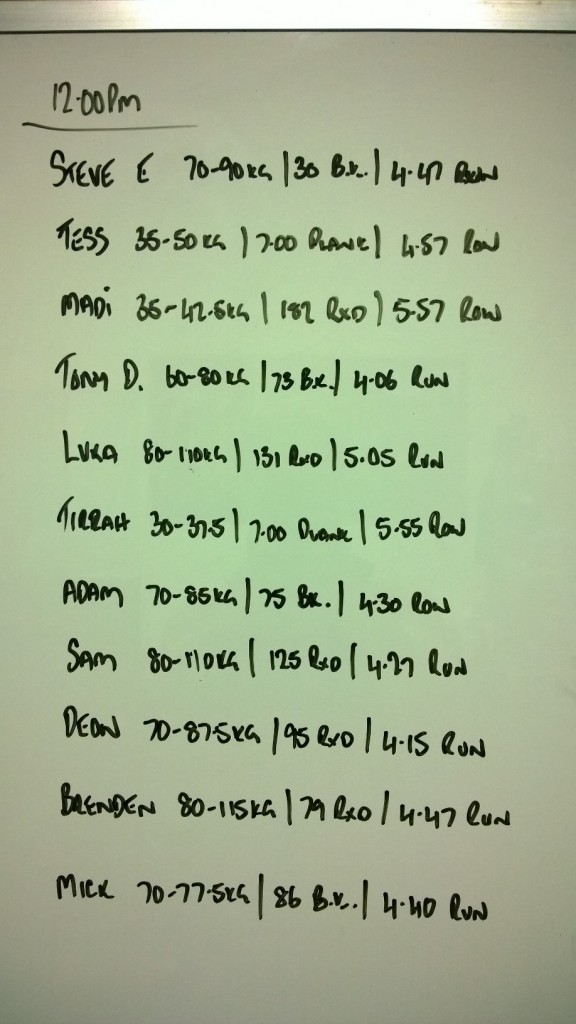 12.00pm
STEVE E 70-90KG | 30 B.K. | 4.47
TESS 35-50KG | 7.00 PLANK | 4.57 ROW
MADi 35-42.5KG | 182 RXD | 5.57 ROW
TONY D. 60-80KG | 73 B.K. | 4.06 RUN
LUKA 80-110KG | 131 RXD | 5.05 RUN
TIRRAH 30-37.5 | 7.00 PLANK | 5.55 ROW
ADAM 70-85KG | 75 BK. | 4.30 ROW
SAM 80-110KG | 125 RXD | 4.27 RUN
DEON 70-87.5KG | 95 RXD | 4.15 RUN
BRENDEN 80-115KG | 79 RXD | 4.47 RUN
MICK 70-77.5KG | 86 B.K. | 4.40 RUN